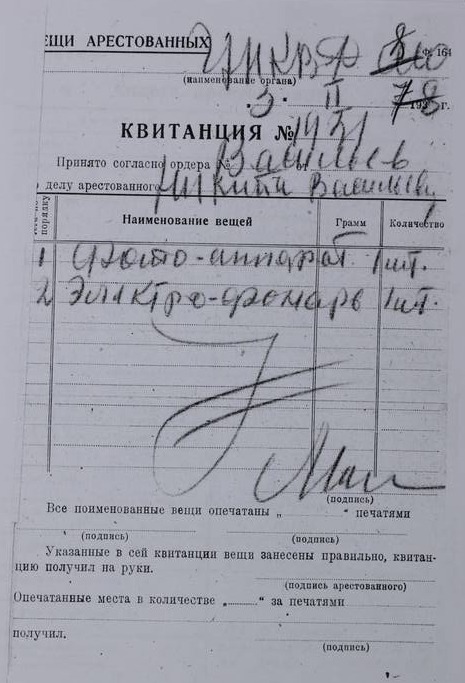 ЕЩИ АРЕСТОВАННЫХ
Ф. 164
(наименование органа)
3 II 1938 г.
КВИТАНЦИЯ № 1931
Принято согласно ордера № Васильев
делу арестованного Никита Васильев
порядку Наименование вещей Грамм Количество
1 Фото-аппарат 1 шт.
2 Электро-фонарь 1 шт.
(подпись)
Все поименованные вещи опечатаны „ “ печатями
(подпись) (подпись)
Указанные в сей квитанции вещи занесены правильно, квитан-
цию получил на руки.
(подпись арестованного)
Опечатанные места в количестве „..........“ за печатями
получил.
(подпись)